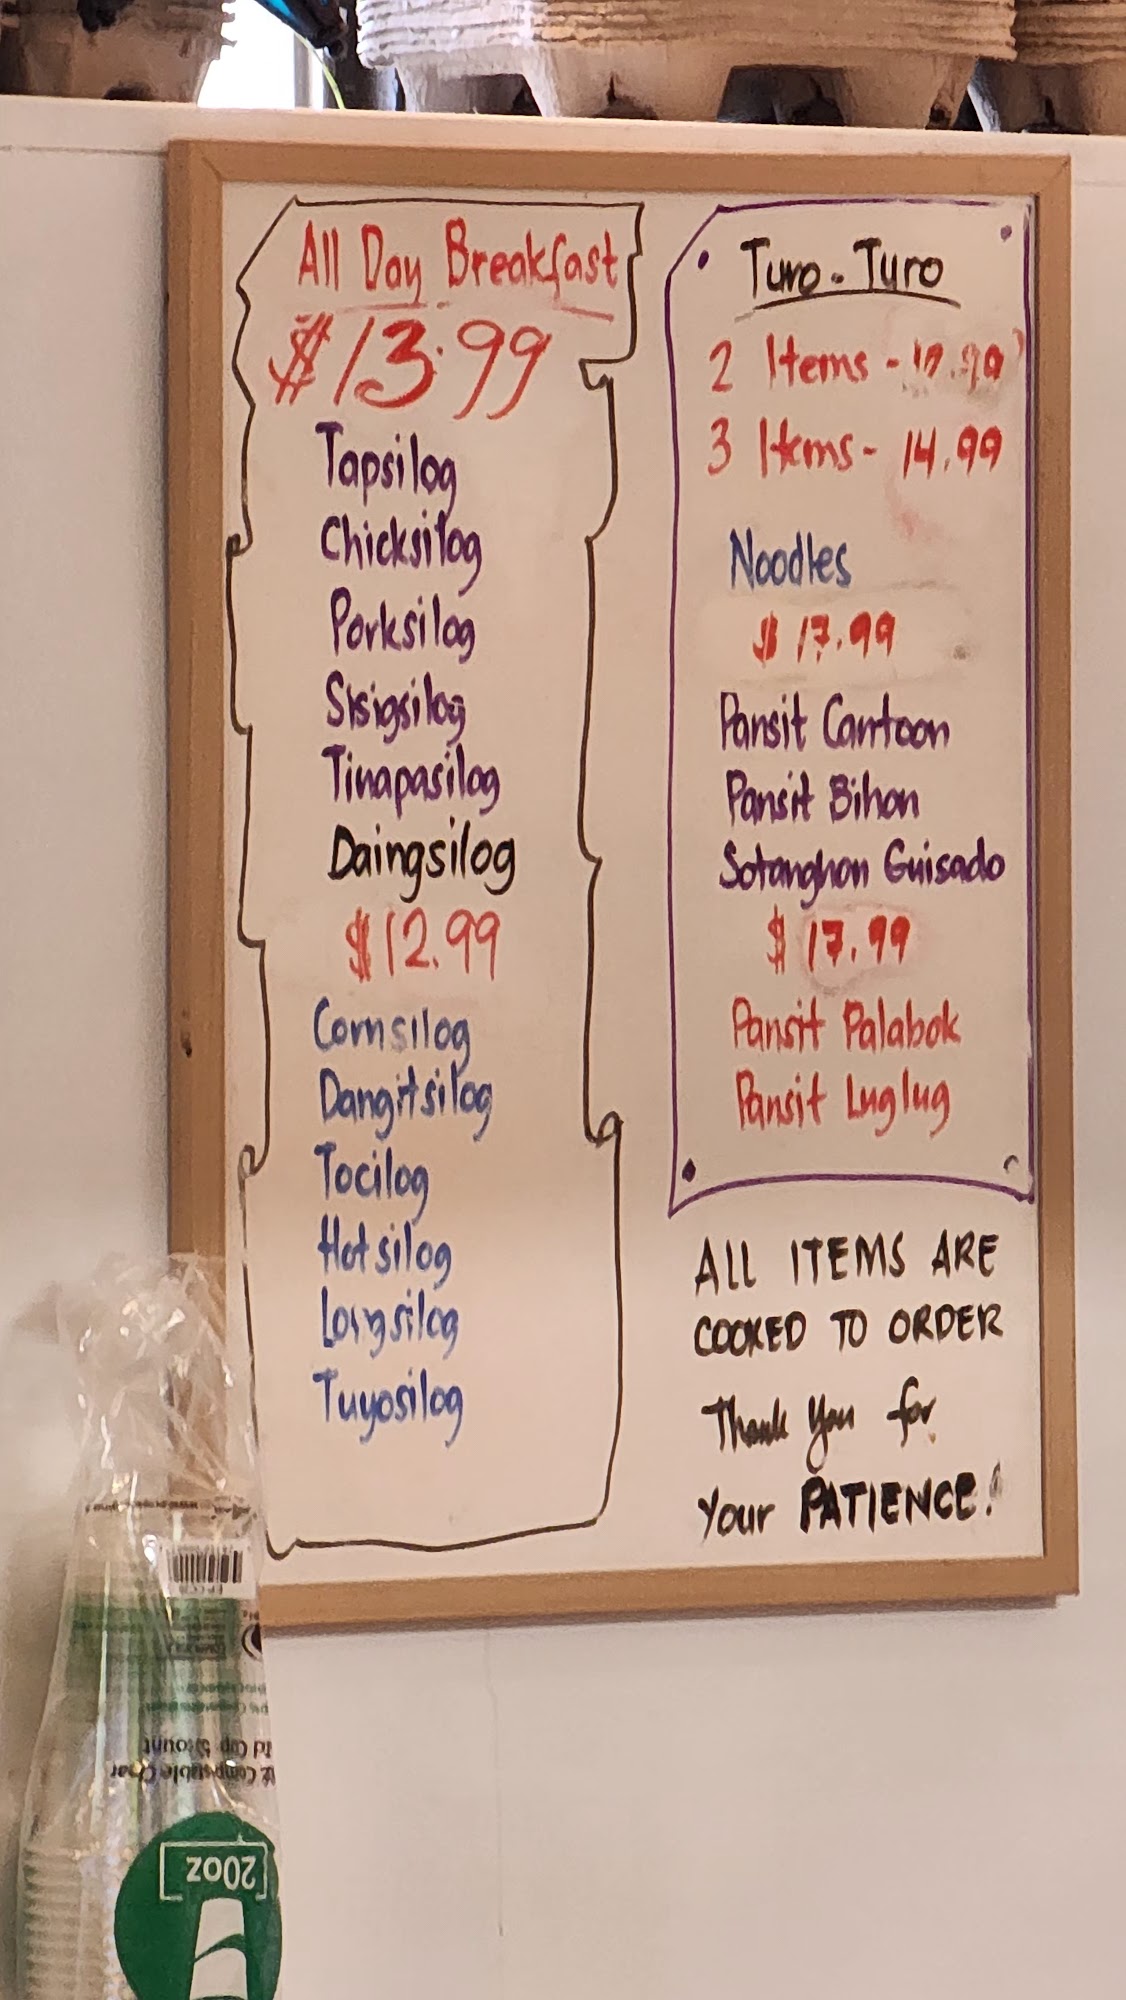 All Day Breakfast
$13.99
Tapsilog
Chicksilog
Porksilog
Sisigsilog
Tinapasilog
Daingsilog
$12.99
Cornsilog
Dangitsilog
Tocilog
Hotsilog
Longsilog
Tuyosilog
Turo-Turo
2 Items -
3 Items - 14.99
Noodles
$17.99
Pansit Canton
Pansit Bihon
Sotanghon Guisado
$17.99
Pansit Palabok
Pansit Luglug
ALL ITEMS ARE
COOKED TO ORDER
Thank You for
Your PATIENCE!
20oz